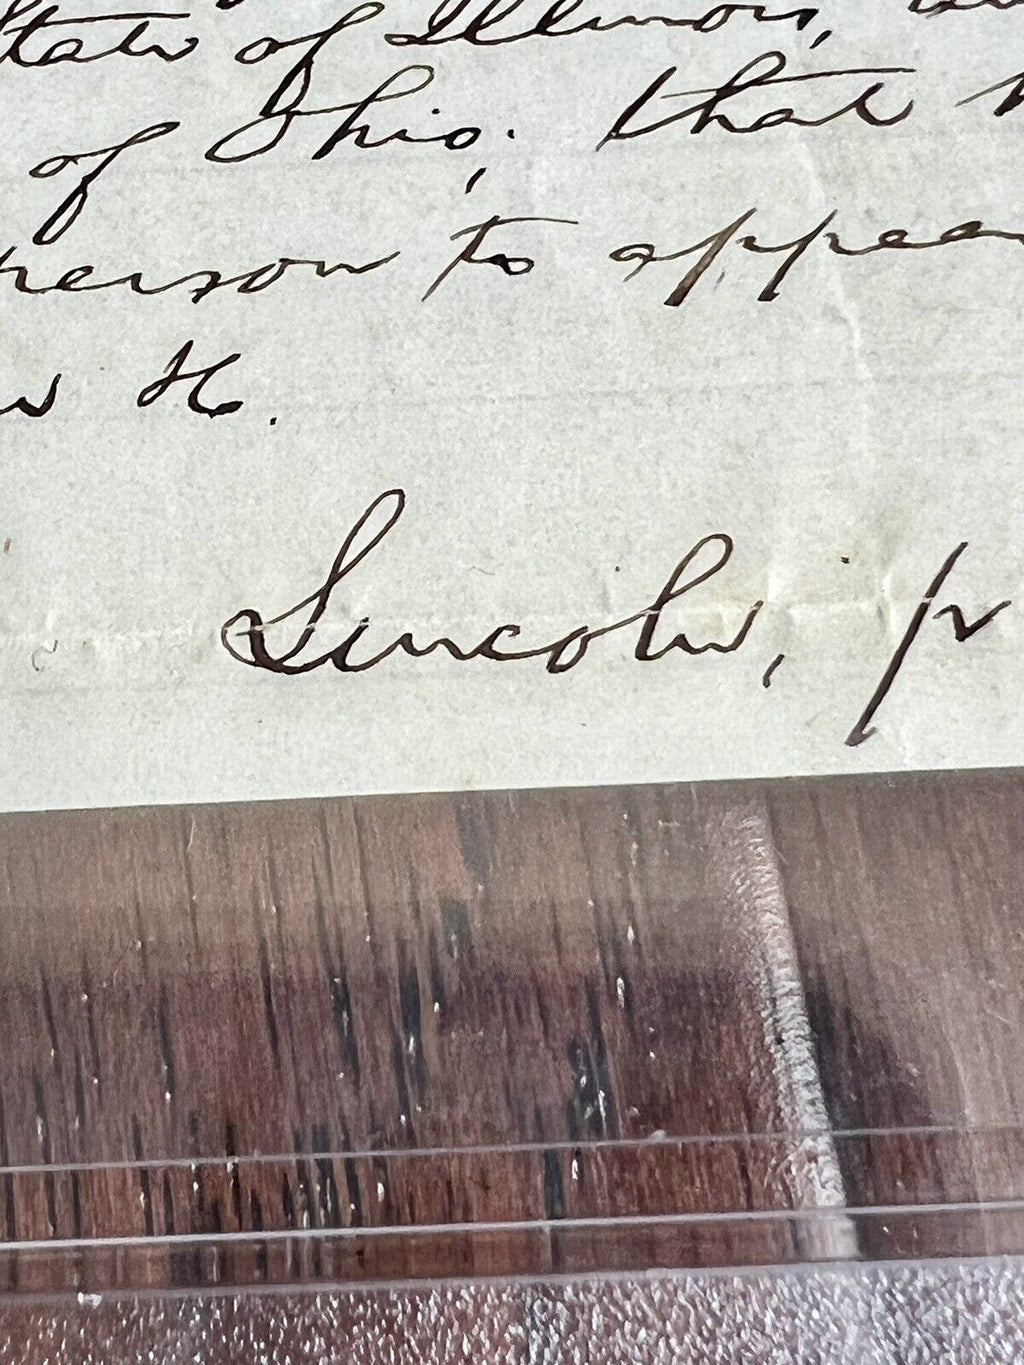 State of Illinois,
of Ohio; that
person to appear
H.
Lincoln, p